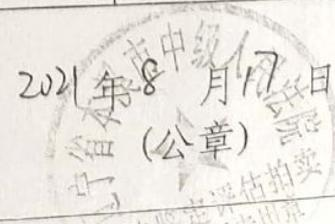 2021年8月17日
(公章)
辽宁省本溪市中级人民法院
评估拍卖